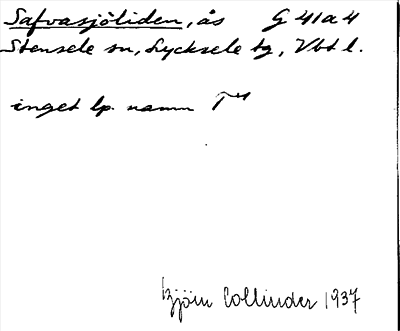 Safvasjöliden, ås G 41a4
Stensele sn, Lycksele tg, Vbt l.
inget lp. namn
Björn Collinder 1937